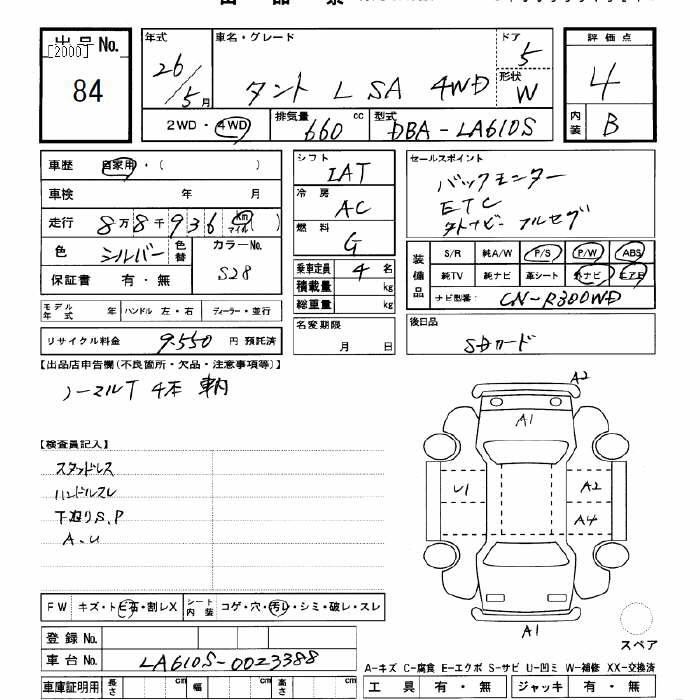 出品No.
[2000]
84
年式
26/5月
車名・グレード
タント L SA 4WD
ドア
5
形状
W
評価点
4
内装
B
2WD・4WD
排気量
660 cc
型式
DBA-LA610S
車歴 自家用・( )
車検 年 月
走行 8万8千936 Km マイル( )
色 シルバー 色替
カラーNo.
S28
保証書 有・無
モデル年式 年 ハンドル 左・右 ディーラー・並行
リサイクル料金 9,550 円 預託済
シフト
IAT
冷房
AC
燃料
G
乗車定員 4 名
積載量 kg
総重量 kg
名変期限
月 日
セールスポイント
バックモニター
ETC
外ナビ フルセグ
装備品
S/R 純A/W P/S P/W ABS
純TV 純ナビ 革シート 外ナビ エアB
ナビ型番: CN-R300WD
後日品
SDカード
【出品店申告欄(不良箇所・欠品・注意事項等)】
ノーマルT 4本 車内
【検査員記入】
スタッドレス
ハンドルスレ
下廻りS.P
A.U
FW キズ・トビ石・割レX シート内装 コゲ・穴・汚レ・シミ・破レ・スレ
登録No.
車台No. LA610S-0023388
車庫証明用 長さ cm 幅 cm 高さ cm
A2
A1
U1
A2
A4
A1
スペア
A-キズ C-腐食 E-エクボ S-サビ U-凹ミ W-補修 XX-交換済
工具 有・無 ジャッキ 有・無